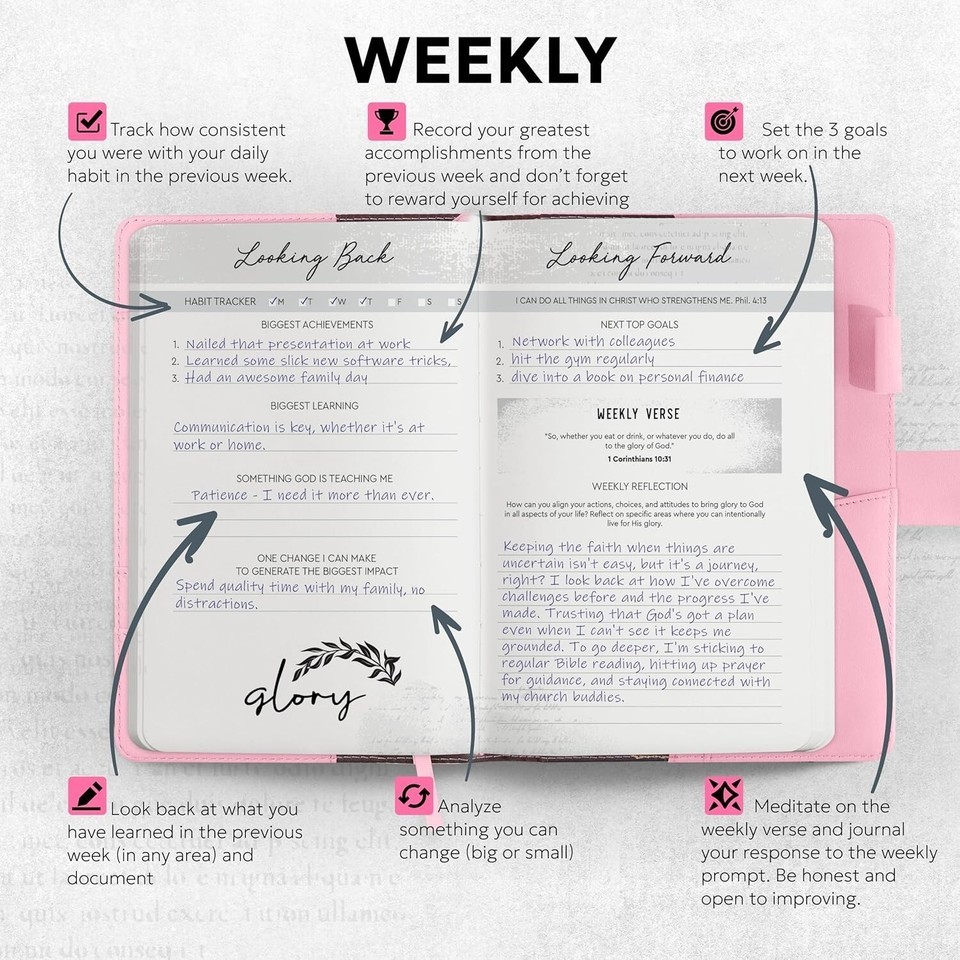 WEEKLY
Track how consistent
you were with your daily
habit in the previous week.
Record your greatest
accomplishments from the
previous week and don't forget
to reward yourself for achieving
Set the 3 goals
to work on in the
next week.
Looking Back
HABIT TRACKER M T W T F S S
BIGGEST ACHIEVEMENTS
1. Nailed that presentation at work
2. Learned some slick new software tricks,
3. Had an awesome family day
BIGGEST LEARNING
Communication is key, whether it's at
work or home.
SOMETHING GOD IS TEACHING ME
Patience - I need it more than ever.
ONE CHANGE I CAN MAKE
TO GENERATE THE BIGGEST IMPACT
Spend quality time with my family, no
distractions.
glory
Looking Forward
I CAN DO ALL THINGS IN CHRIST WHO STRENGTHENS ME. Phil. 4:13
NEXT TOP GOALS
1. Network with colleagues
2. hit the gym regularly
3. dive into a book on personal finance
WEEKLY VERSE
"So, whether you eat or drink, or whatever you do, do all
to the glory of God."
1 Corinthians 10:31
WEEKLY REFLECTION
How can you align your actions, choices, and attitudes to bring glory to God
in all aspects of your life? Reflect on specific areas where you can intentionally
live for His glory.
Keeping the faith when things are
uncertain isn't easy, but it's a journey,
right? I look back at how I've overcome
challenges before and the progress I've
made. Trusting that God's got a plan
even when I can't see it keeps me
grounded. To go deeper, I'm sticking to
regular Bible reading, hitting up prayer
for guidance, and staying connected with
my church buddies.
Look back at what you
have learned in the previous
week (in any area) and
document
Analyze
something you can
change (big or small)
Meditate on the
weekly verse and journal
your response to the weekly
prompt. Be honest and
open to improving.